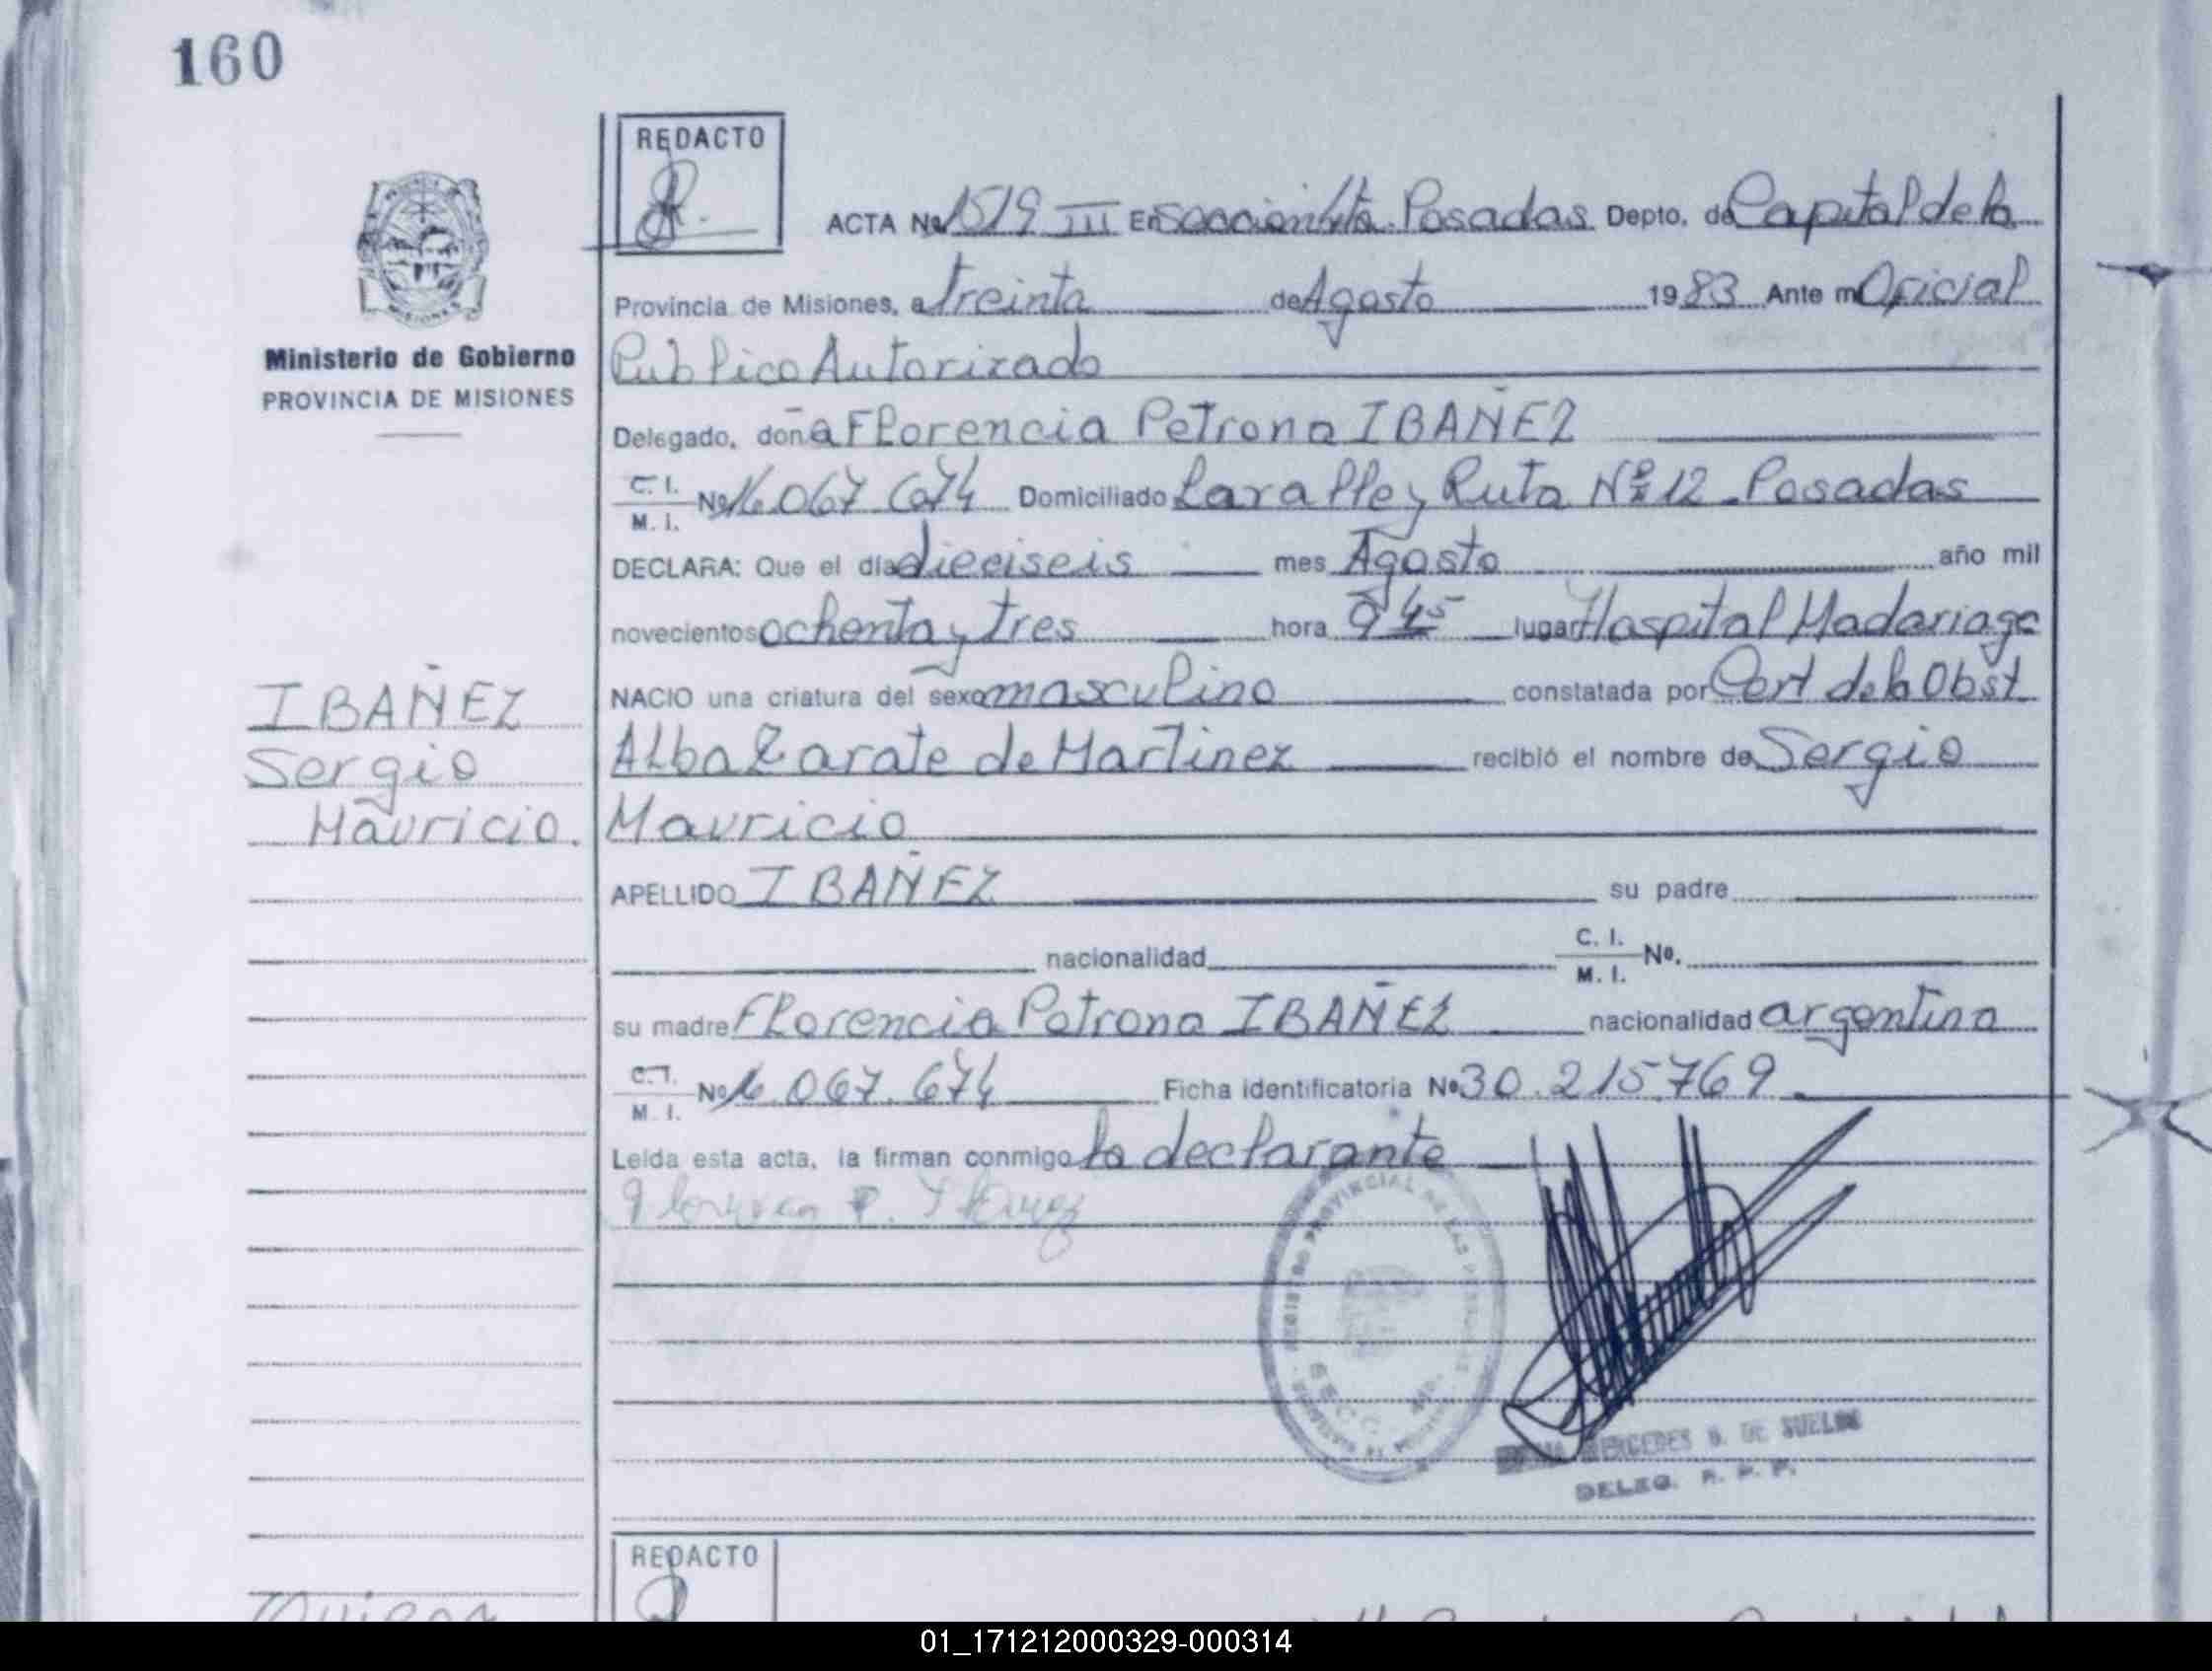 160
REDACTO
ACTA Nº 1519 III En Sección 6ta. Posadas Depto. de Capital de la
Provincia de Misiones, a treinta de Agosto 1983 Ante mí Oficial
Ministerio de Gobierno
PROVINCIA DE MISIONES
Publico Autorizado
Delegado, doña Florencia Petrona IBAÑEZ
C. I.
M. I. Nº 16.067.674 Domiciliado Lavalle y Ruta Nº 12 - Posadas
DECLARA: Que el día dieciseis mes Agosto año mil
novecientos ochenta y tres hora 9 45 lugar Hospital Madariaga
NACIO una criatura del sexo masculino constatada por Cert de la Obst
Alba Zarate de Martinez recibió el nombre de Sergio
Mauricio
IBAÑEZ
Sergio
Mauricio.
APELLIDO IBAÑEZ su padre
nacionalidad C. I.
M. I. Nº.
su madre Florencia Petrona IBAÑEZ nacionalidad argentina
C. I.
M. I. Nº 16.067.674 Ficha identificatoria Nº 30.215.769
Leída esta acta, la firman conmigo la declarante
Florencia P. Ibañez
REGISTRO PROVINCIAL DE LAS PERSONAS
MERCEDES B. DE SUELDO
DELEG. R. P. P.
REDACTO
01_171212000329-000314